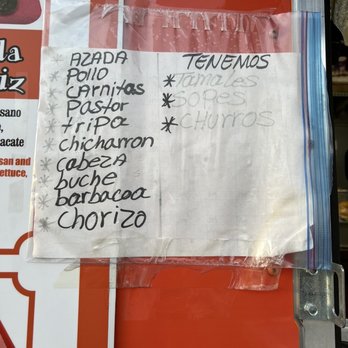 da
iz
sano
o,
acate
san and
ettuce,
* AZADA
* Pollo
* Carnitas
* Pastor
* tripa
* chicharron
* cabeza
* buche
* barbacoa
* Chorizo
TENEMOS
* Tamales
* SOPES
* CHURROS